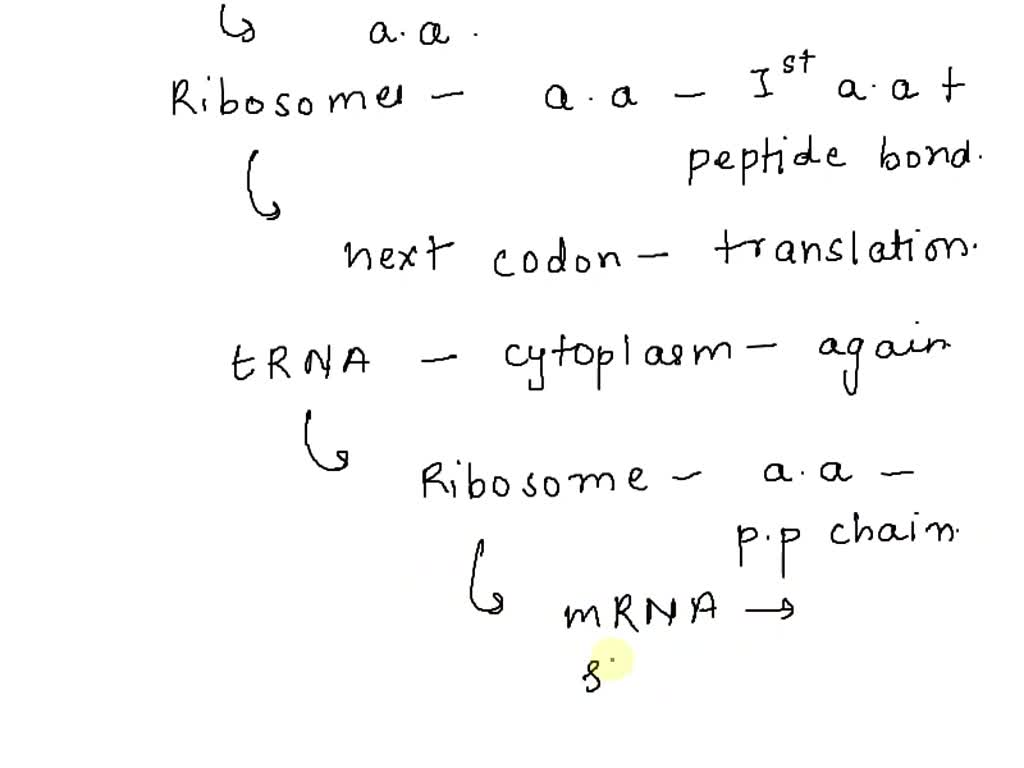 a.a.
Ribosome – a.a – Ist a.a +
peptide bond.
next codon – translation.
tRNA – cytoplasm – again
Ribosome – a.a –
p.p chain.
mRNA →
s